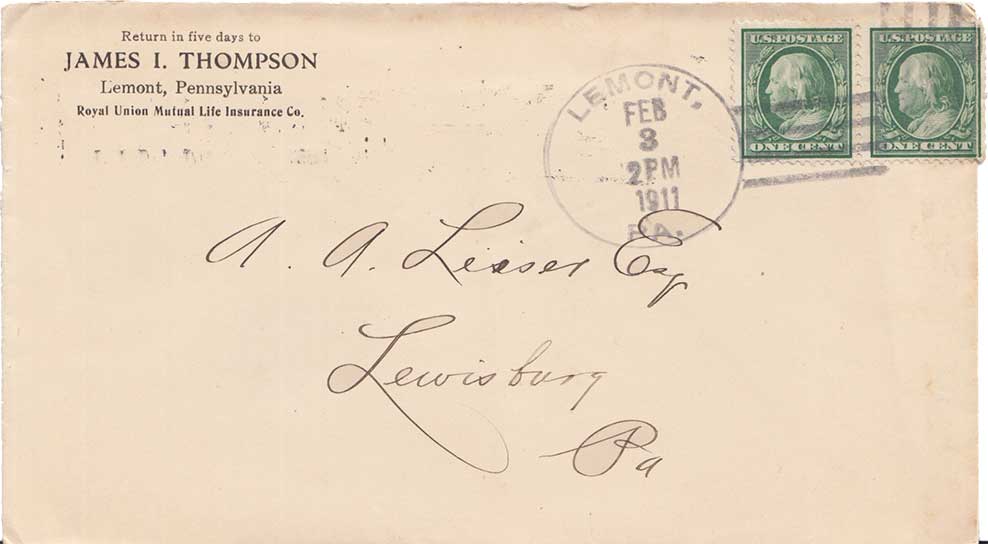 Return in five days to
JAMES I. THOMPSON
Lemont, Pennsylvania
Royal Union Mutual Life Insurance Co.
LEMONT,
FEB
3
2PM
1911
PA.
U.S. POSTAGE
ONE CENT
U.S. POSTAGE
ONE CENT
A. A. Leiser Esq
Lewisburg
Pa